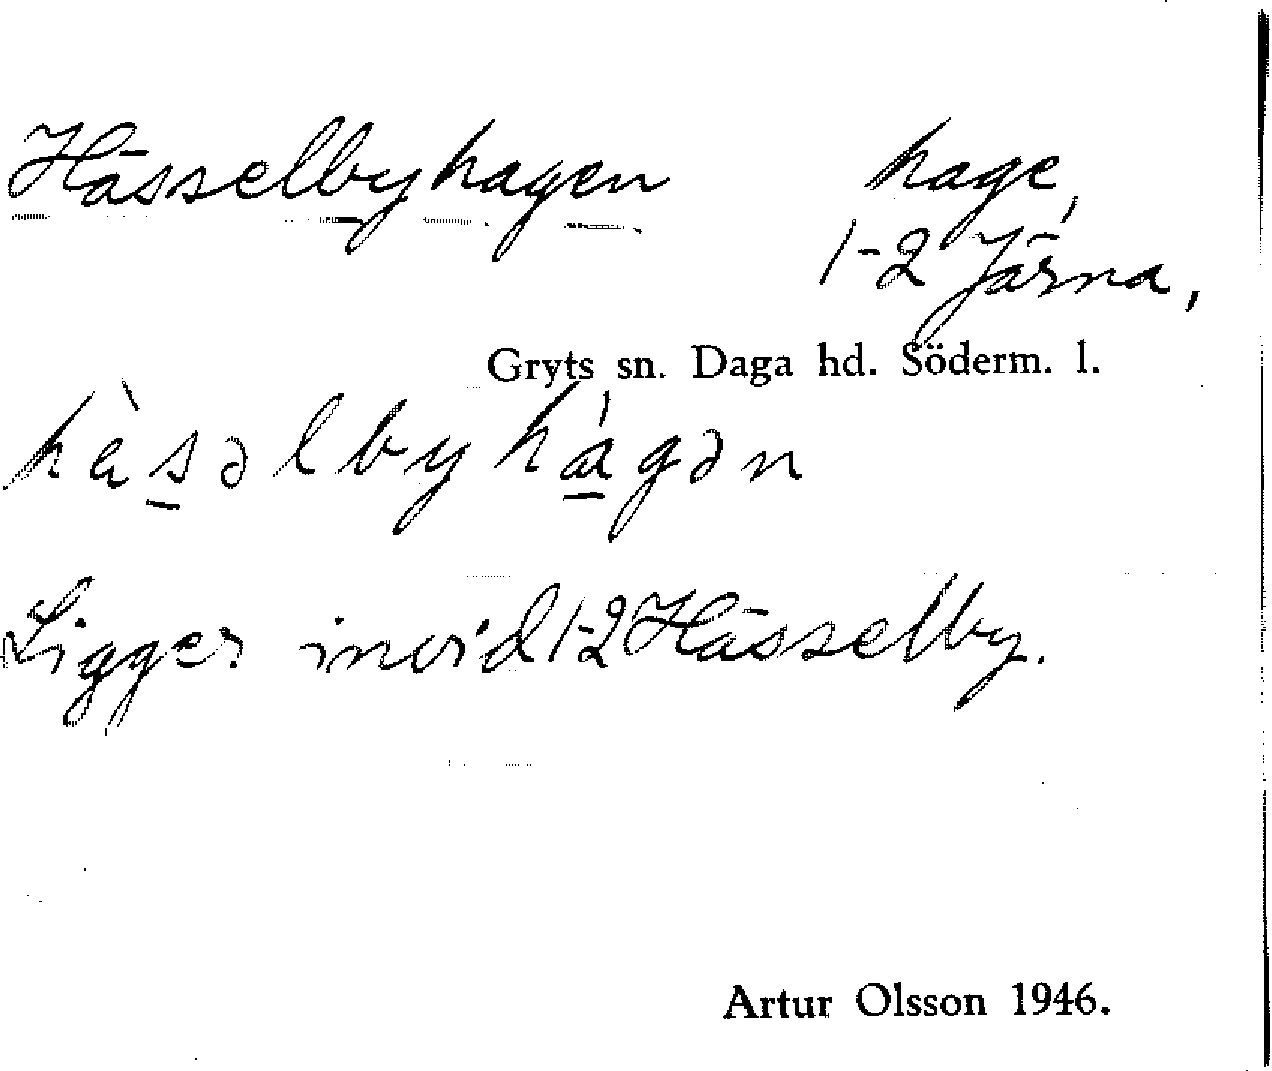 Hässelbyhagen hage,
1-2 Järna,
Gryts sn. Daga hd. Söderm. l.
hä̀səlbyhágən
Ligger invid 1-2 Hässelby.
Artur Olsson 1946.